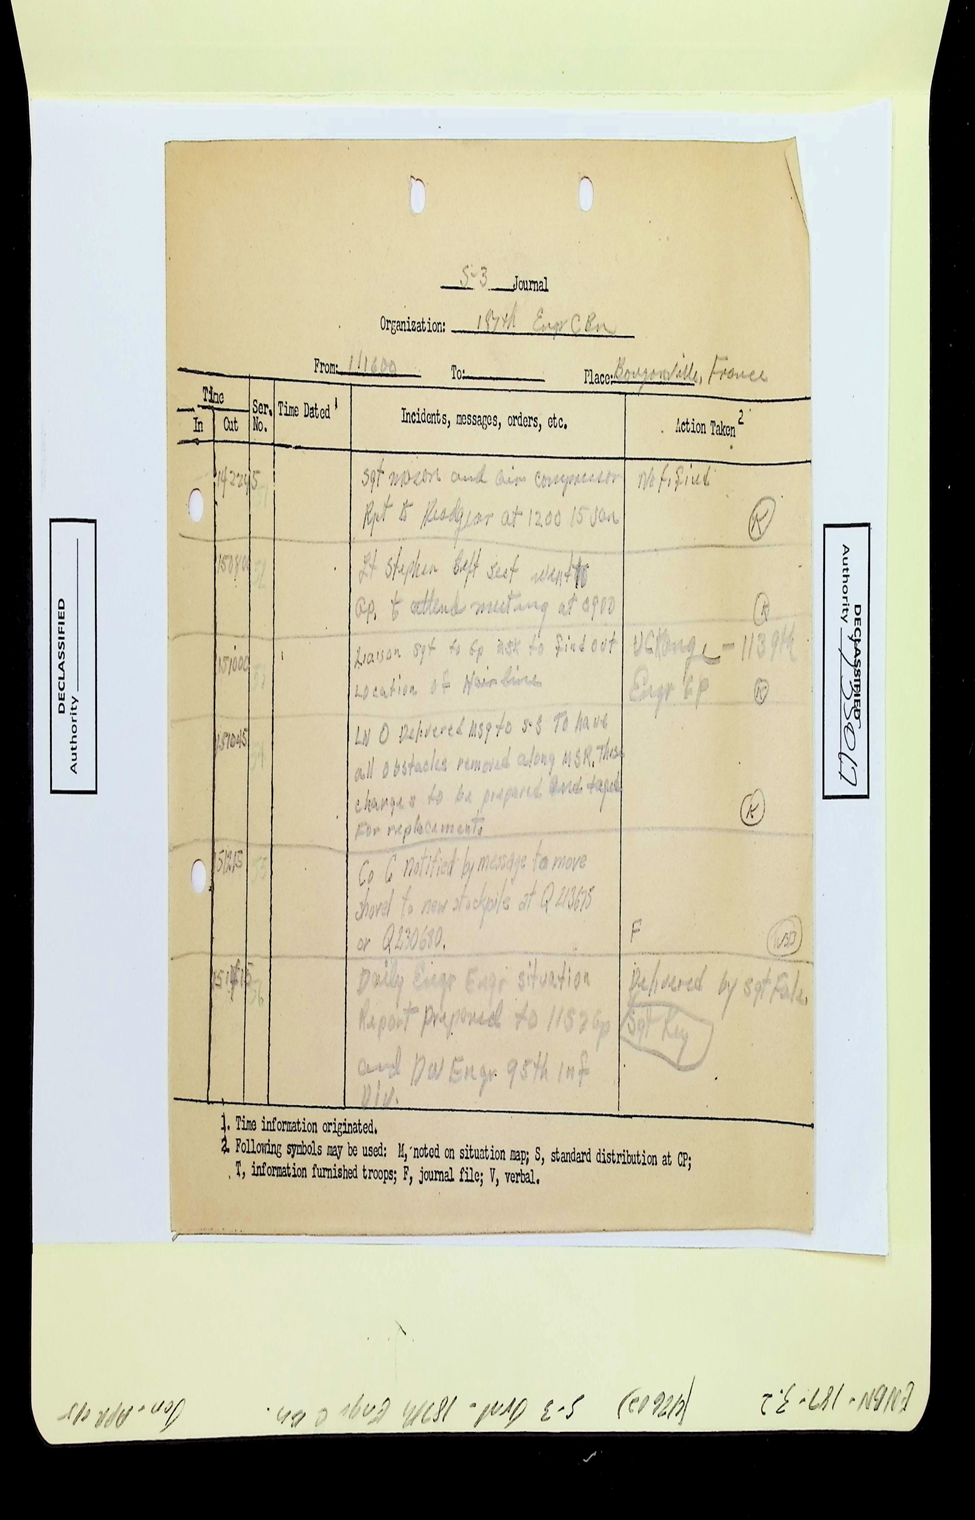 S-3 Journal
Organization: 187th Engr C Bn
From: 111600 To: Place: Bouzonville, France
Time
In Out Ser. No. Time Dated 1 Incidents, messages, orders, etc. Action Taken 2
142245 51 Sgt and air compressor Notified
Rpt to at 1200 15 Jan K
52 Lt Stephen left sect went to
Gp. to attend meeting at 0900 K
151000 53 Liaison Sgt to Gp ask to find out - 1139th
Location of Hairline Engr Gp K
151045 54 LN O Delivered msg to S-3 To have
all obstacles removed along MSR. These
charges to be prepared and taped
For replacements K
151215 55 Co C Notified by message to move
shovel to new stockpile at Q213675
or Q230680. F
56 Daily Engr Engr situation Delivered by Sgt
Report prepared to Gp Sgt Key
and Div Engr. 95th Inf
Div.
1. Time information originated.
2. Following symbols may be used: M, noted on situation map; S, standard distribution at CP;
T, information furnished troops; F, journal file; V, verbal.
DECLASSIFIED
Authority
DECLASSIFIED
Authority 735017
ENBN-187-3.2 S-3 Jrnl - 187th Engr C Bn. Jan-Apr 45